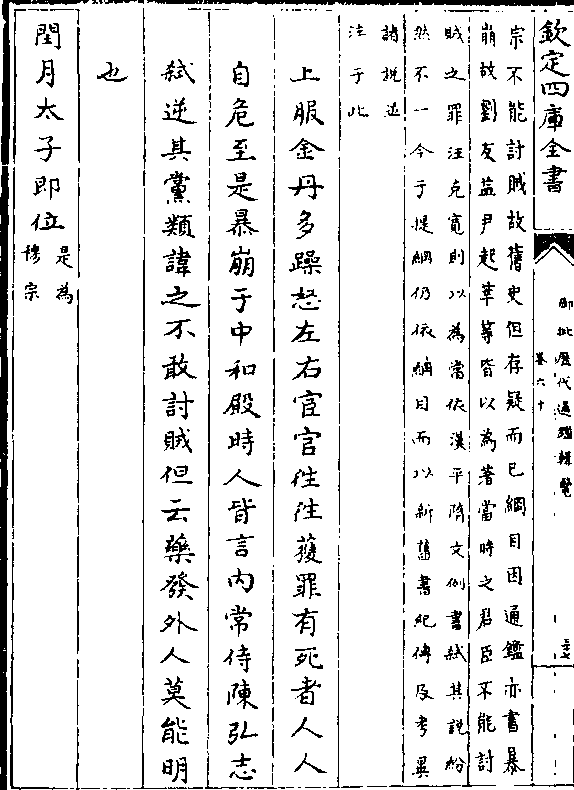 欽定四庫全書
御批歷代通鑑輯覽
卷六十
宗不能討賊故舊史但存疑而已綱目因通鑑亦書暴
崩故劉友益尹起莘等皆以為著當時之君臣不能討
賊之罪汪克寬則以為當依漢平隋文例書弑其説紛
然不一今于提綱仍依綱目而以新舊書紀傳及考異
諸説並
注于此
上服金丹多躁怒左右宦官往往獲罪有死者人人
自危至是暴崩于中和殿時人皆言内常侍陳弘志
弑逆其黨類諱之不敢討賊但云藥發外人莫能明
也
閏月太子即位是為
穆宗